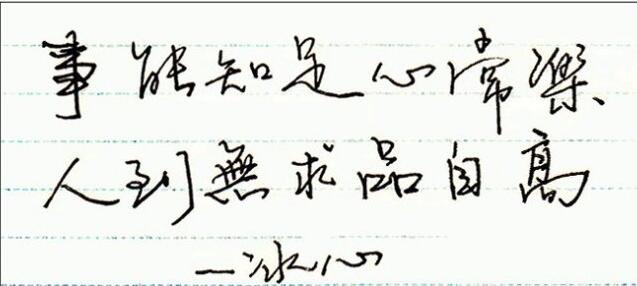 事能知足心常樂
人到無求品自高
—冰心